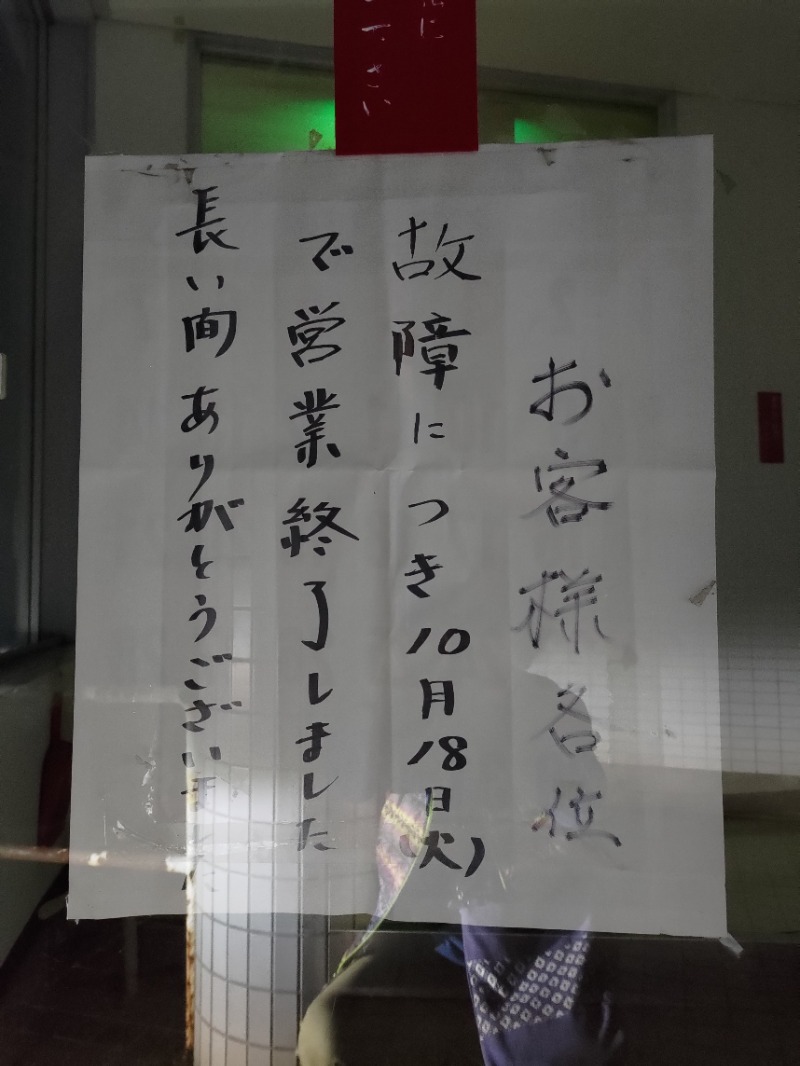 お客様各位
故障につき10月18日(火)
で営業終了しました
長い間ありがとうございました
さい
に